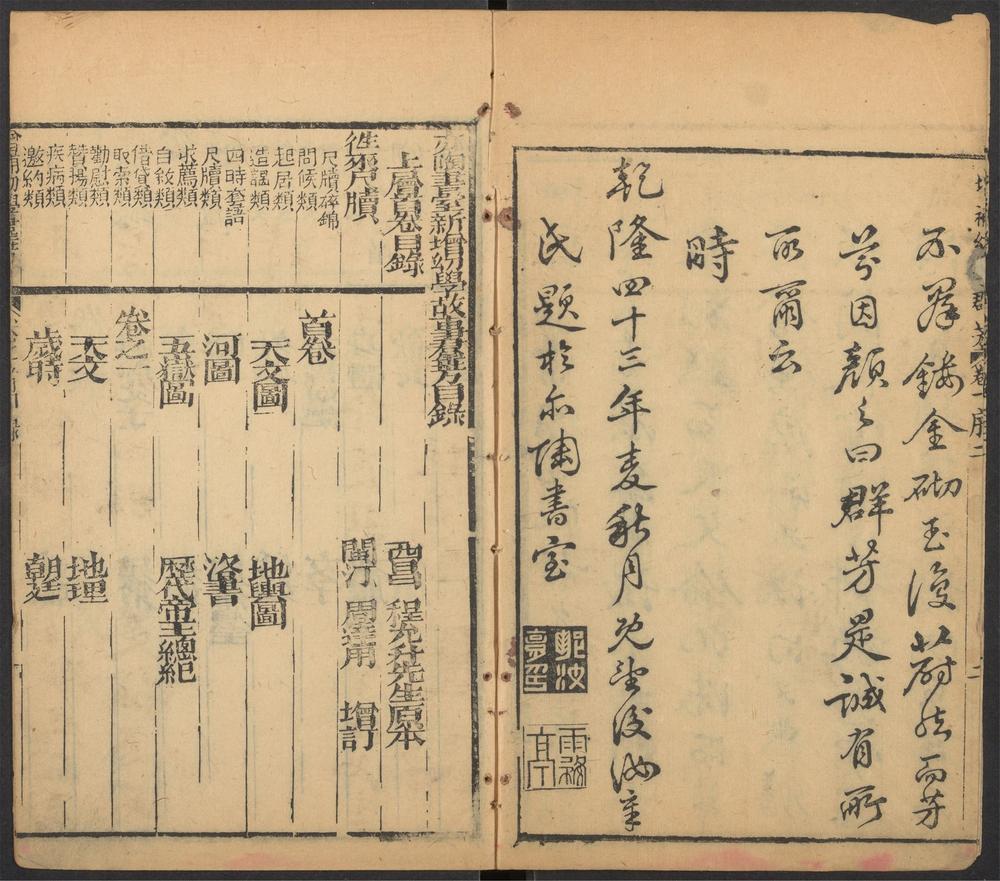 不啻鏤金砌玉復蔚然而芬
芬因顏之曰群芳是誠有所
取爾云
時
乾隆四十三年麥秋月既望後汝亭
氏題於亦陶書室
亦陶書室新增幼學故事羣芳目錄
上層首卷目錄
徃來尺牘
尺牘碎錦
問候類
起居類
造謁類
四時套語
尺牘類
求薦類
自敘類
借貸類
取索類
勸慰類
贊揚類
疾病類
邀約類
西昌 程允升先生原本
閩汀 周達用 增訂
首卷
天文圖 地輿圖
河圖 洛書
五嶽圖 歷代帝王總紀
卷之一
天文 地理
歲時 朝廷